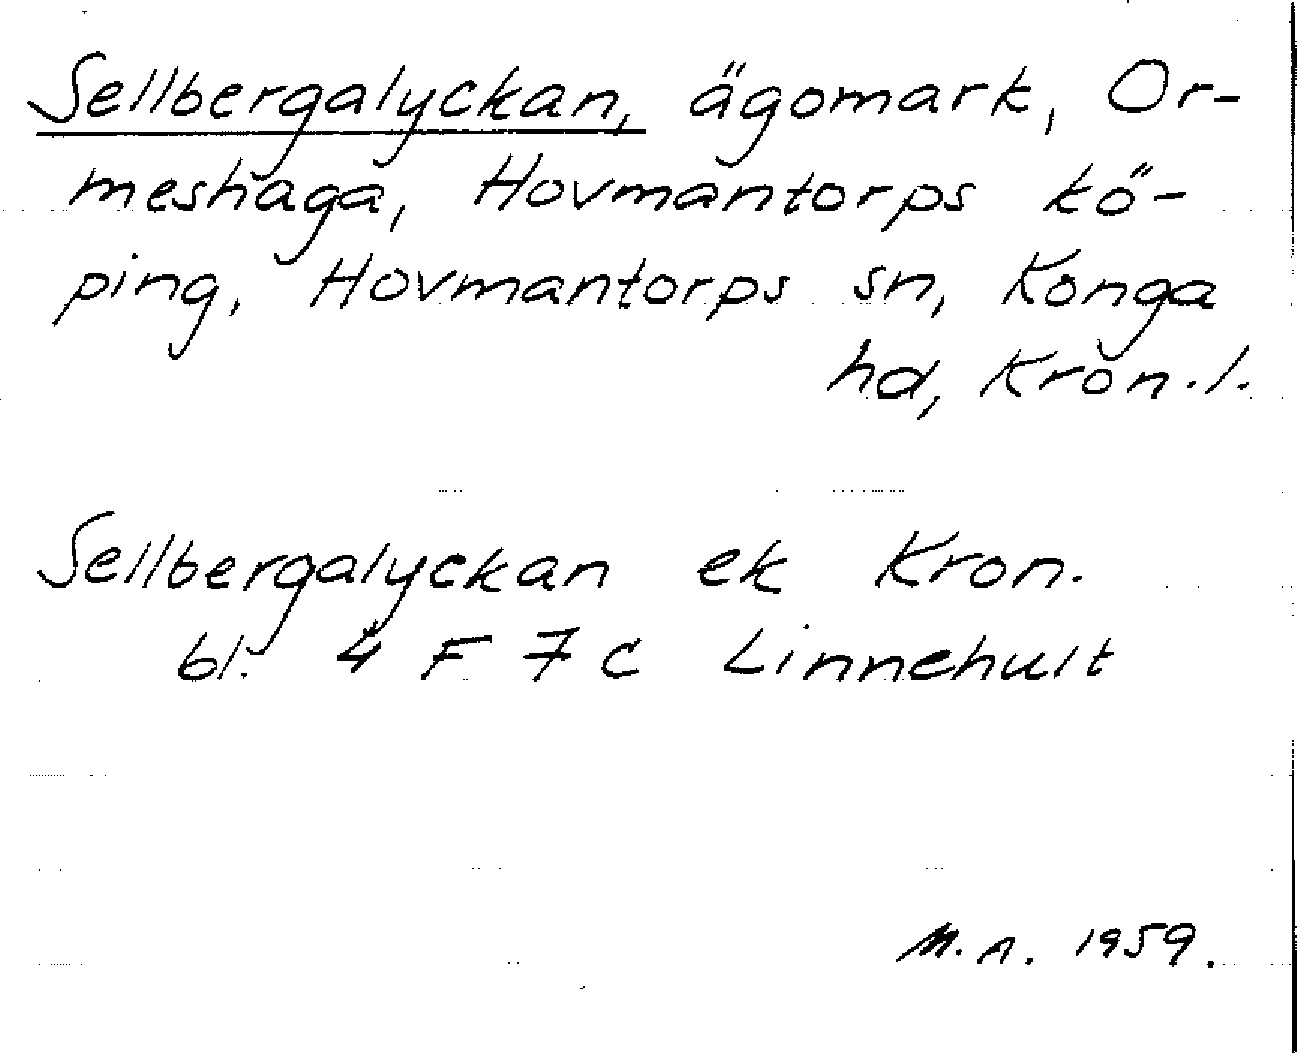 Sellbergalyckan, ägomark, Or-
meshaga, Hovmantorps kö-
ping, Hovmantorps sn, Konga
hd, Kron.l.
Sellbergalyckan ek Kron.
bl. 4 F 7 c Linnehult
M.A. 1959.